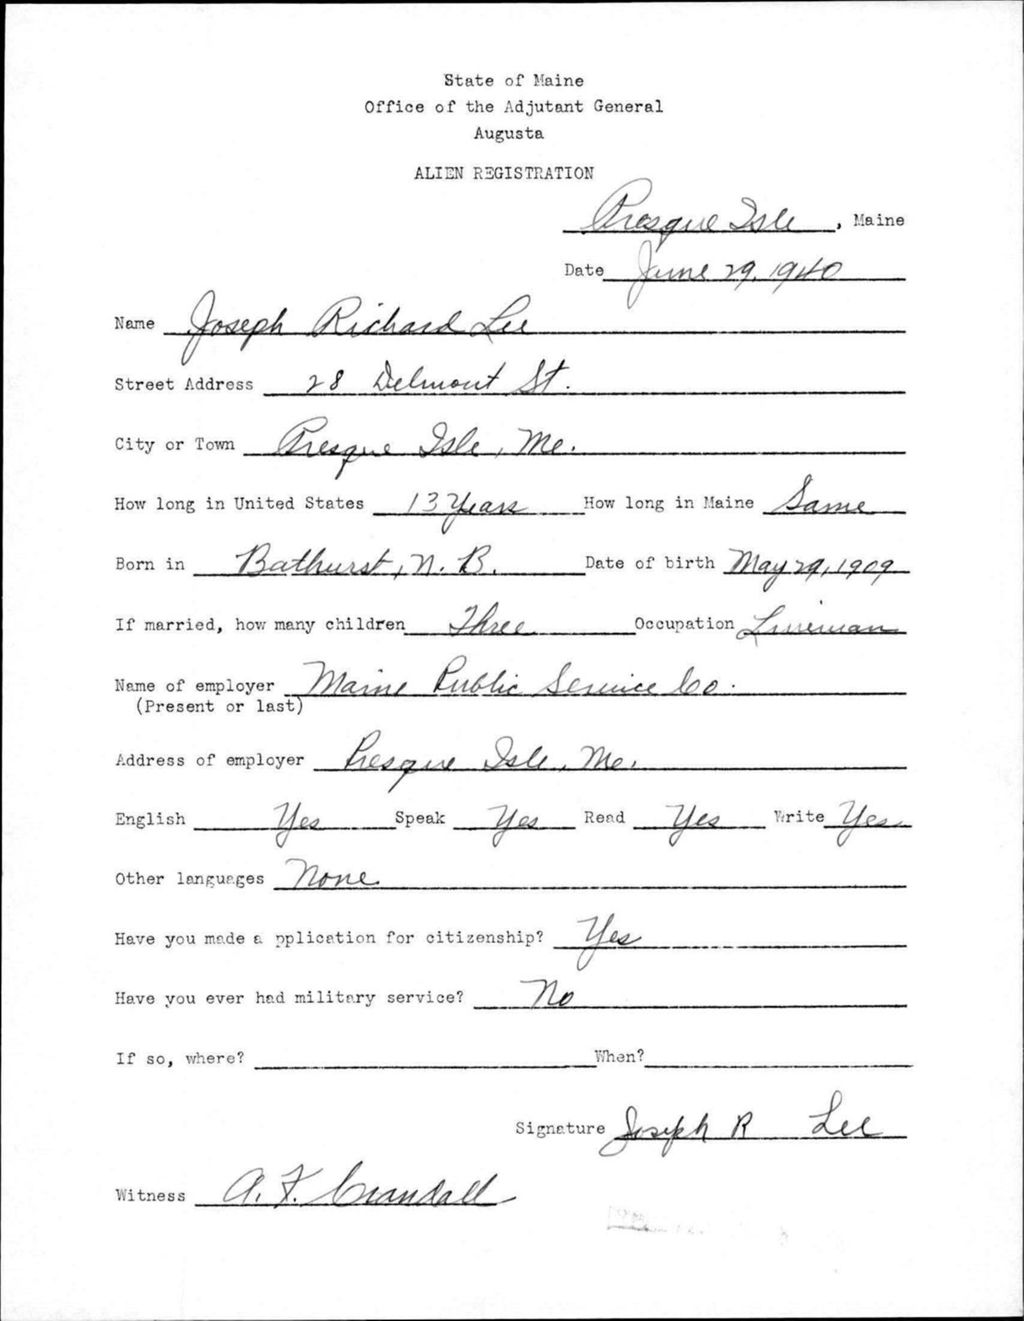 State of Maine
Office of the Adjutant General
Augusta
ALIEN REGISTRATION
Presque Isle, Maine
Date June 29, 1940
Name Joseph Richard Lee
Street Address 28 Delmont St.
City or Town Presque Isle, Me.
How long in United States 13 Years How long in Maine Same
Born in Bathurst, N. B. Date of birth May 29, 1909
If married, how many children Three Occupation Lineman
Name of employer Maine Public Service Co.
(Present or last)
Address of employer Presque Isle, Me.
English Yes Speak Yes Read Yes Write Yes
Other languages None
Have you made a pplication for citizenship? Yes
Have you ever had military service? No
If so, where? When?
Signature Joseph R Lee
Witness A. F. Crandall